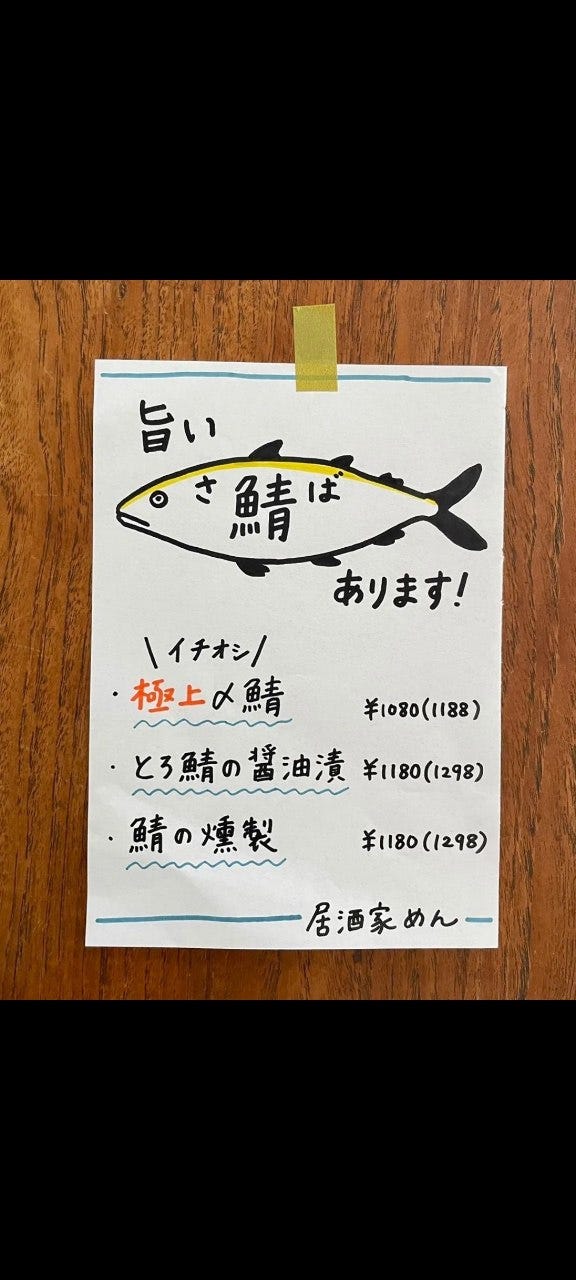 旨い
さ鯖ば
あります!
\イチオシ/
・極上〆鯖 ¥1080(1188)
・とろ鯖の醤油漬 ¥1180(1298)
・鯖の燻製 ¥1180(1298)
居酒家めん